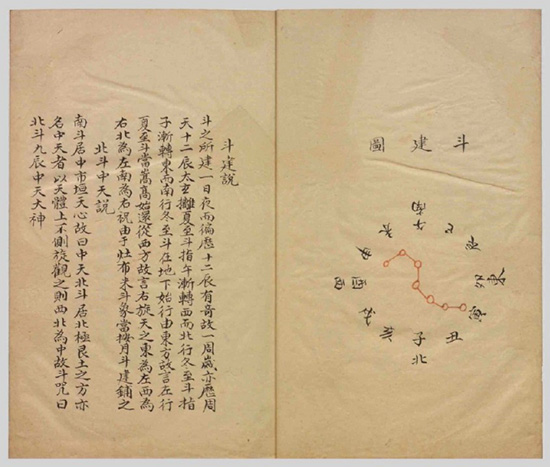 斗建圖
午南
未
巳
申
辰
酉西
寅
亥
丑
子
北
斗建說
斗之所建一日夜而徧歷十二辰有奇故一周歲亦歷周
天十二辰太玄攡夏至斗指午漸轉西而北行冬至斗指
子漸轉東而南行冬至斗在地下始行由東方故言左行
夏至斗當嵩高始還從西方故言右旋天之東為左西為
右北為左南為右祝由于灶布米斗象當按月斗建鋪之
北斗中天說
南斗居中市垣天心故曰中天北斗居北極艮土之方亦
名中天者以天體上不側旋觀之則西北為中故斗咒曰
北斗九辰中天大神